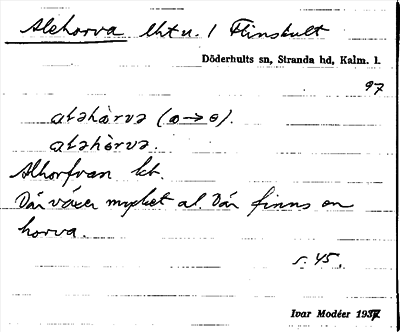 Alehorva lht u. / Flinshult
Döderhults sn, Stranda hd, Kalm. l.
97
alahårva (a→ɵ).
alahårva.
Alhorfvan kt.
Där växer mycket al. Där finns en
horva.
s. 45.
Ivar Modéer 1937